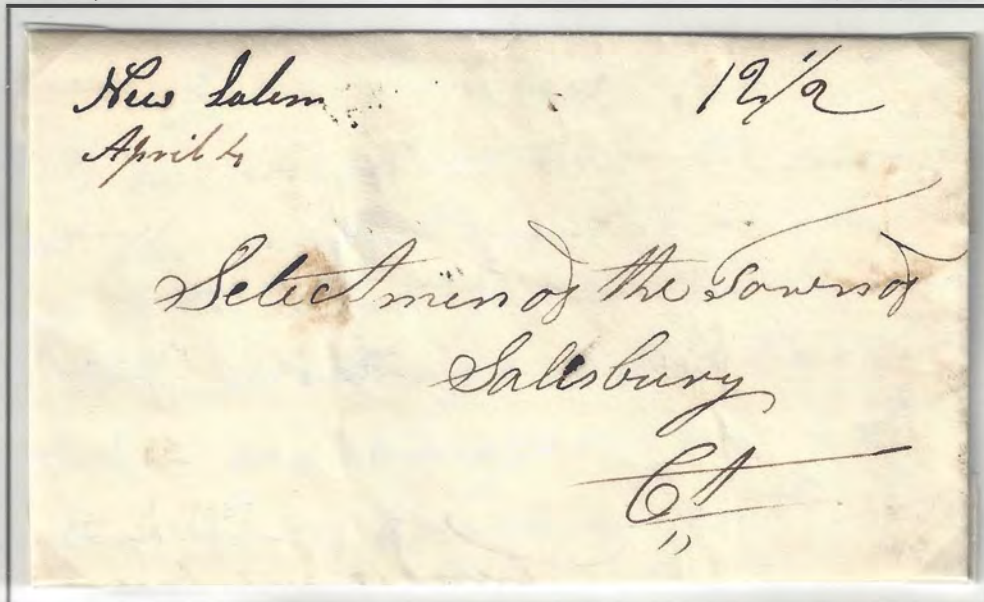 New Salem 12 1/2
April 4
Selectmen of the Town of
Salisbury
Ct